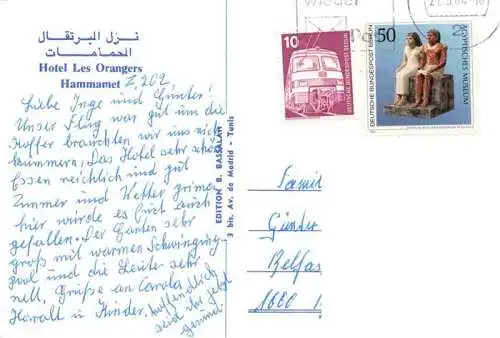 نزل البرتقال
الحمامات
Hotel Les Orangers
Hammamet Z,202,
Liebe Inge und Günter!
Unser Flug war gut um die
Koffer brauchten wir uns nicht
kümmern. Das Hotel sehr schön
Essen reichlich und gut
Zimmer und Wetter prima
hier würde es Euch auch
gefallen. Der Garten sehr
groß mit warmen Schwimming
pool und die Leute sehr
nett. Grüße an Carola
Harald u Kinder. Hoffendlich
seid ihr jetzt
gesund.
EDITION B. BASSALAH
3 bis, Av. de Madrid - Tunis
wieder
10
DEUTSCHE BUNDESPOST BERLIN
50
DEUTSCHE BUNDESPOST BERLIN
ÄGYPTISCHES MUSEUM
Famil
Günter
Belfas
1000